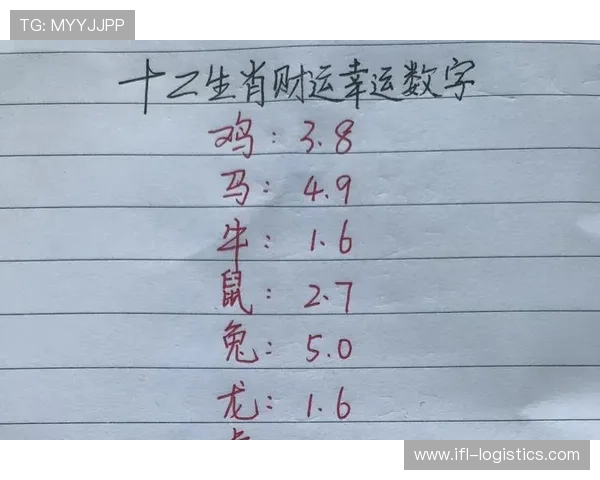 TG: MYYJJPP
十二生肖财运幸运数字
鸡: 3.8
马: 4.9
牛: 1.6
鼠: 2.7
兔: 5.0
龙: 1.6
www.ifl-logistics.com